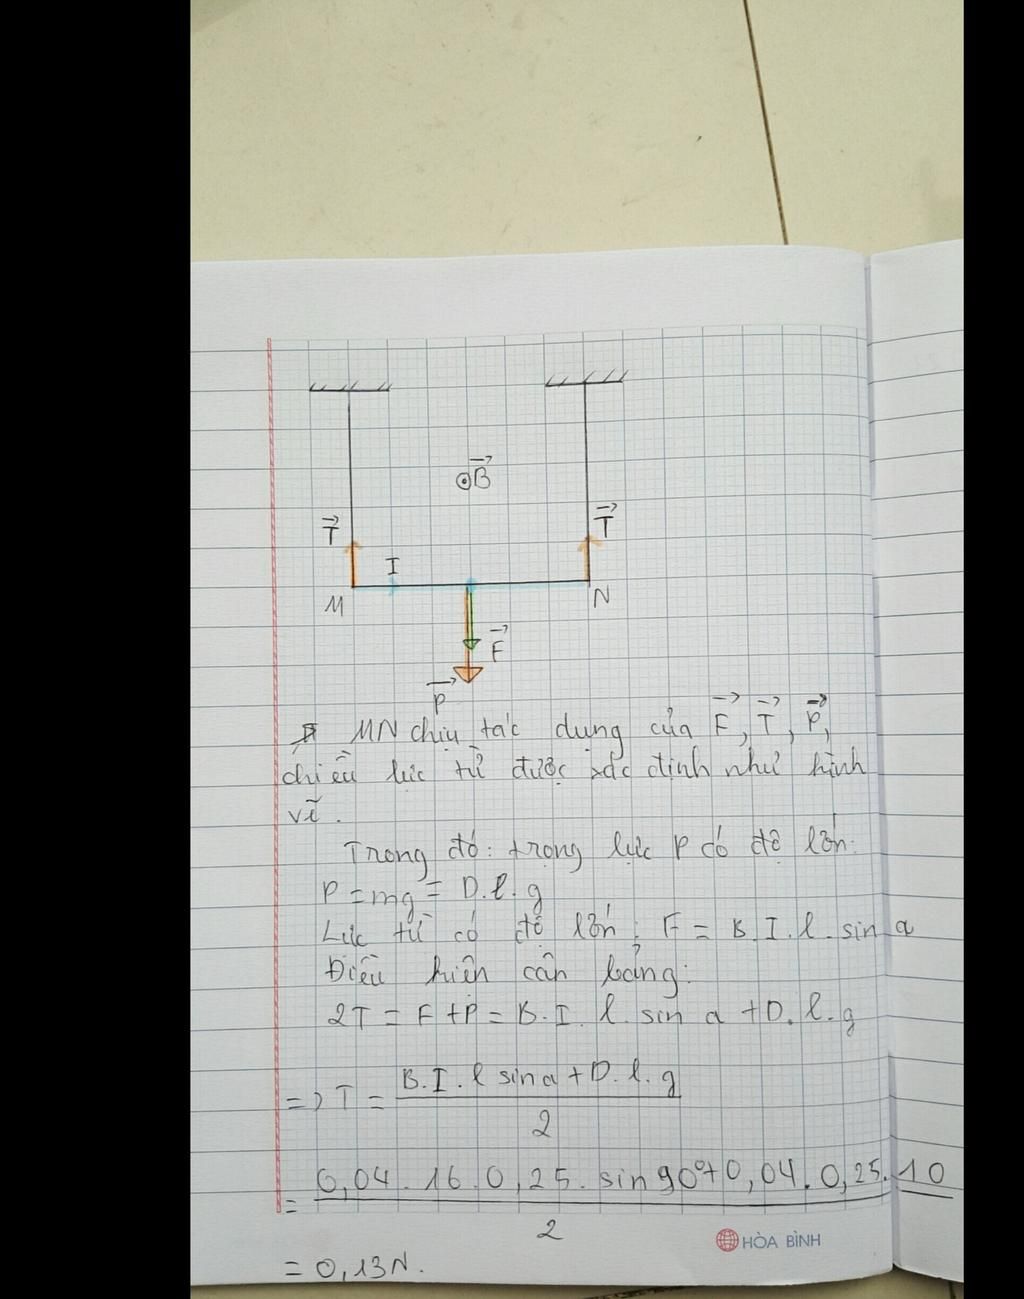 ⊙B⃗
T⃗
T⃗
I
M
N
F⃗
P⃗
MN chịu tác dụng của F⃗, T⃗, P⃗,
chiều lực từ được xác định như hình
vẽ.
Trong đó: trọng lực P có độ lớn:
P = mg = D.l.g
Lực từ có độ lớn: F = B.I.l.sin α
Điều kiện cân bằng:
2T = F + P = B.I.l.sin α + D.l.g
=> T = B.I.l sin α + D.l.g
2
= 0,04.16.0,25.sin 90° + 0,04.0,25.10
2
= 0,13N.
HÒA BÌNH